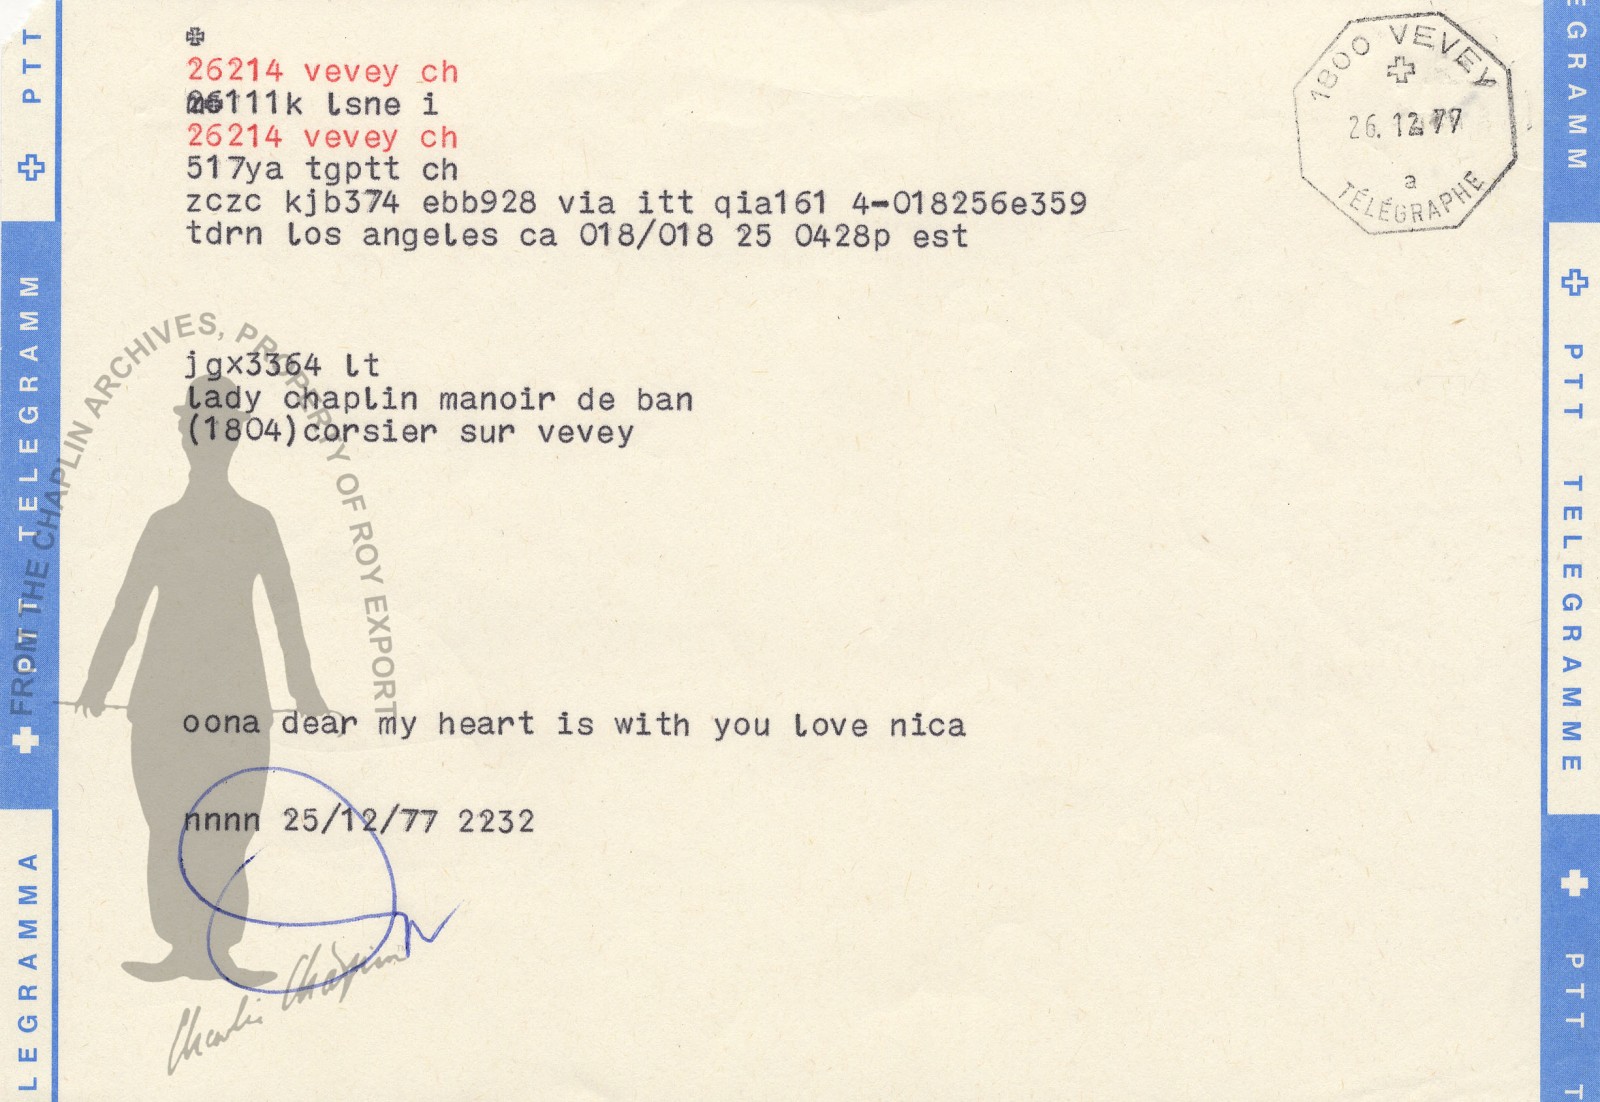 26214 vevey ch
26111k lsne i
26214 vevey ch
517ya tgptt ch
zczc kjb374 ebb928 via itt qia161 4-018256e359
tdrn los angeles ca 018/018 25 0428p est
jgx3364 lt
lady chaplin manoir de ban
(1804)corsier sur vevey
oona dear my heart is with you love nica
nnnn 25/12/77 2232
1800 VEVEY
26.12.77
a
TÉLÉGRAPHE
FROM THE CHAPLIN ARCHIVES, PROPERTY OF ROY EXPORT
Charlie Chaplin
PTT
PTT TELEGRAMM
LEGRAMMA
EGRAMM
PTT TELEGRAMME
PTT T